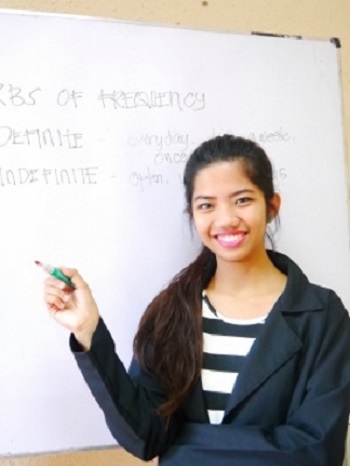 RBS OF FREQUENCY
DEFINITE - everyday, week,
once
INDEFINITE - often,